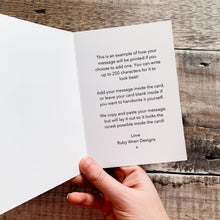 This is an example of how your
message will be printed if you
choose to add one. You can write
up to 250 characters for it to
look best!
Add your message inside the card,
or leave your card blank inside if
you want to handwrite it yourself.
We copy and paste your message,
but will lay it out so it looks the
nicest possible inside the card!
Love
Ruby Wren Designs
x